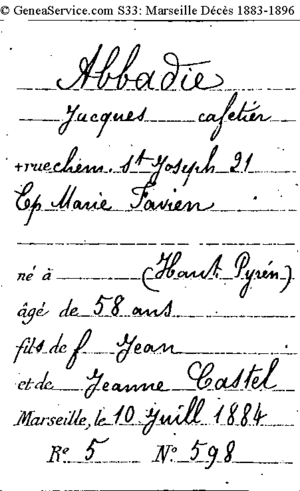 © GeneaService.com S33: Marseille Décès 1883-1896
Abbadie
Jacques cafetier
+rue chem. St Joseph 21
Ep Marie Favien
né à (Haut. Pyrén)
âgé de 58 ans
fils de f Jean
et de Jeanne Castel
Marseille, le 10 Juill 1884
Re 5 No 598